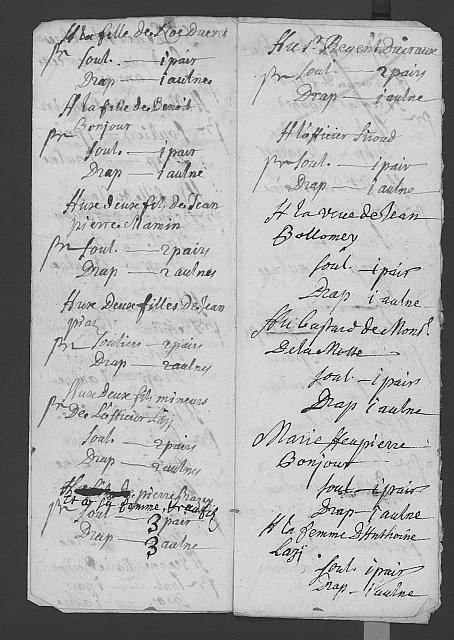 A la fille de Noe Ducret
pr soul. — 1 pair
Drap — 1 aulne
A la fille de Benoit
Bonjour
pr soul. — 1 pair
Drap — 1 aulne
Aux deux fils de Jean
pierre Mamin
pr soul. — 2 pairs
Drap — 2 aulnes
Aux Deux filles de Jean
pr souliers — 2 pairs
Drap — 2 aulnes
Aux deux fils mineurs
pr De L'officier
soul. — 2 pairs
Drap — 2 aulnes
A pierre
Et a sa femme
pr soul 3 pair
Drap 3 aulne
Au Sr. Regent
pr soul. — 2 pairs
Drap — 1 aulne
A l'officier
pr soul. — 1 pair
Drap — 1 aulne
A la veue de Jean
Bollomey
soul. — 1 pair
Drap 1 aulne
Au bastard de Monsr.
De la Motte
soul — 1 pair
Drap 1 aulne
Marie Jeupierre
Bonjour
soul — 1 pair
Drap — 1 aulne
A la femme d'Anthoine
soul. 1 pair
Drap — 1 aulne